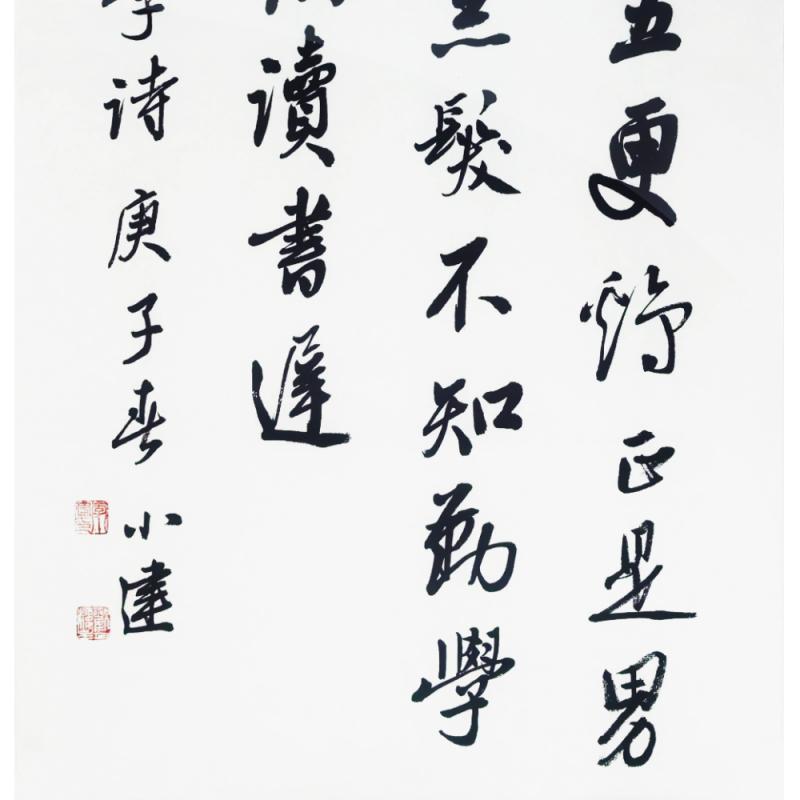 五更鷄正是男
髮不知勤學
讀書遲
诗庚子春 小建